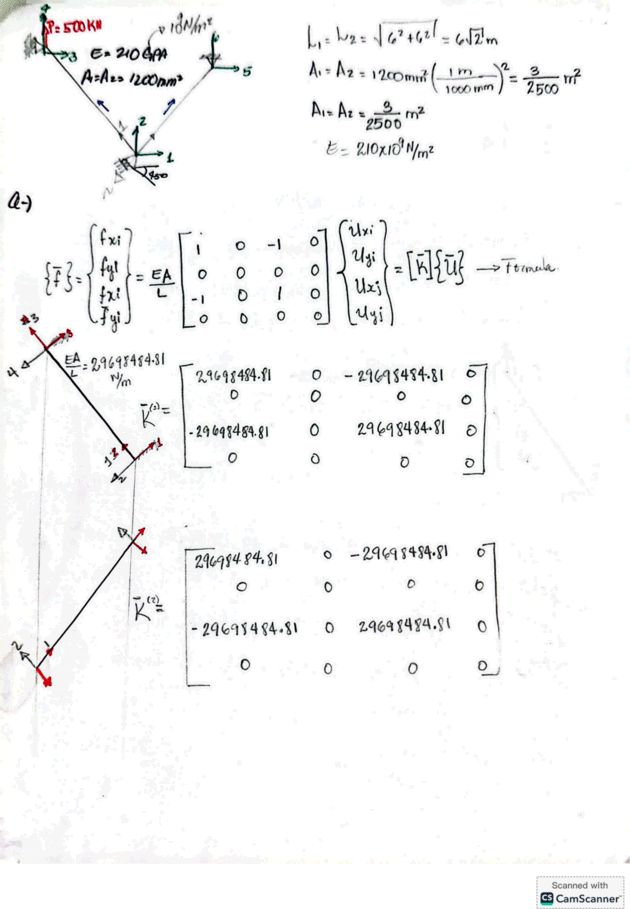 P=500KN
10⁹N/m²
E=210GPA
A1=A2=1200mm²
4
3
6
5
2
1
45º
L₁ = L₂ = √6²+6² = 6√2 m
A₁ = A₂ = 1200mm² (1m/1000mm)² = 3/2500 m²
A₁ = A₂ = 3/2500 m²
E = 210x10⁹N/m²
a-)
{f̄} = {fxi fyi fxi f̄yi} = EA/L [1 0 -1 0
0 0 0 0
-1 0 1 0
0 0 0 0] {Uxi Uyi Uxj Uyj} = [K̄]{Ū} → Formula
3
4
EA/L = 29698484.81 N/m
K̄⁽¹⁾ = [29698484.81 0 -29698484.81 0
0 0 0 0
-29698484.81 0 29698484.81 0
0 0 0 0]
1
2
K̄⁽²⁾ = [29698484.81 0 -29698484.81 0
0 0 0 0
-29698484.81 0 29698484.81 0
0 0 0 0]
2
1
Scanned with
CS CamScanner